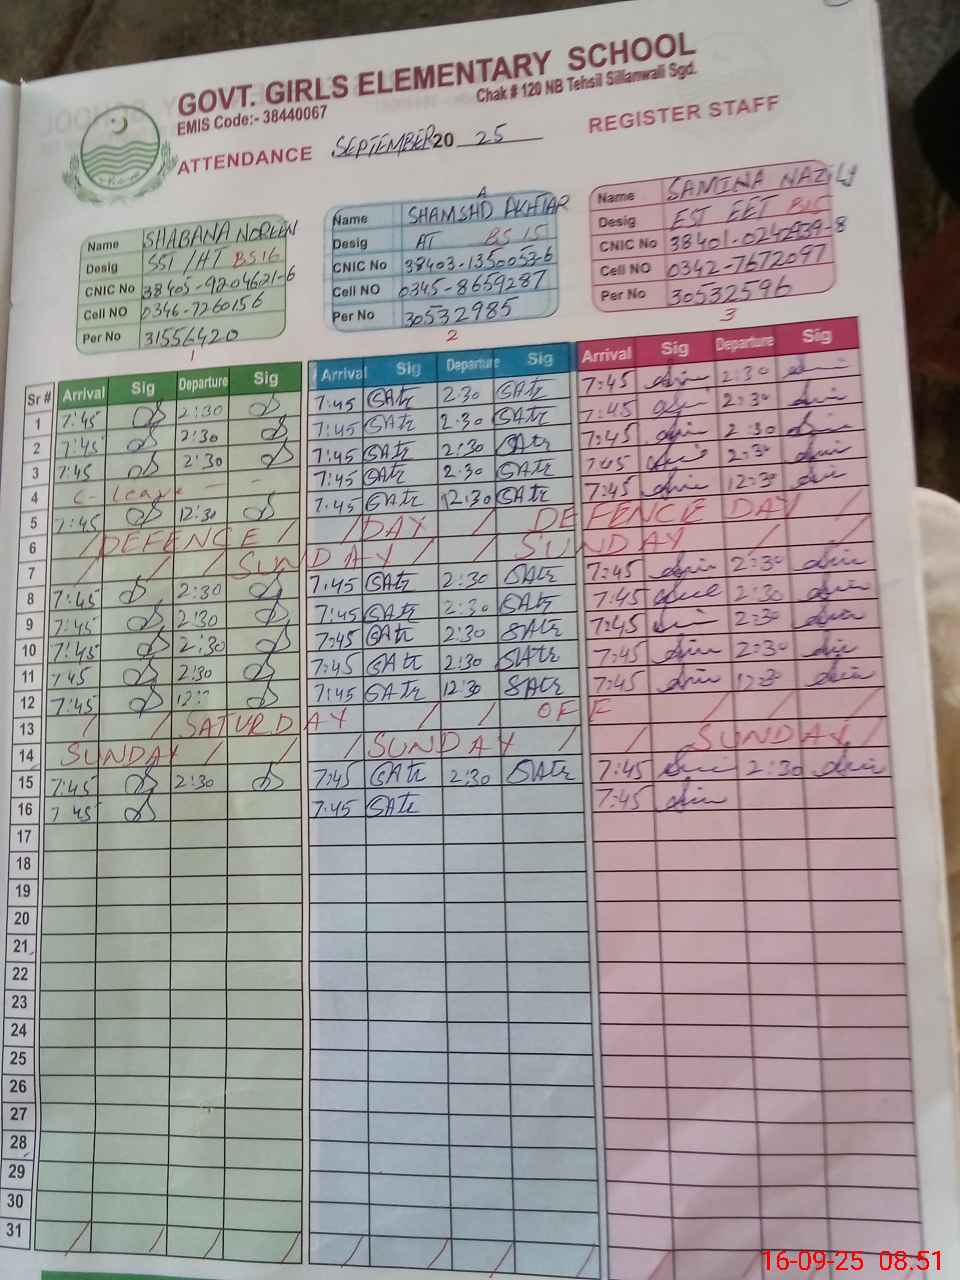 GOVT. GIRLS ELEMENTARY SCHOOL
Chak # 120 NB Tehsil Sillanwali Sgd.
EMIS Code:- 38440067
ATTENDANCE SEPTEMBER 20 25 REGISTER STAFF
Name SHABANA NOREEN
Desig SST /HT BS16
CNIC No 38405-9204621-6
Cell NO 0346-7260156
Per No 31556420
1
Name SHAMSHD AKHTAR
Desig AT BS 15
CNIC No 38403-1350053-6
Cell NO 0345-8659287
Per No 30532985
2
Name SAMINA NAZILY
Desig EST EET B15
CNIC No 38401-0242939-8
Cell NO 0342-7672097
Per No 30532596
3
Sr # Arrival Sig Departure Sig Arrival Sig Departure Sig Arrival Sig Departure Sig
1 7:45 2:30 7:45 2:30 7:45 2:30
2 7:45 2:30 7:45 2:30 7:45 2:30
3 7:45 2:30 7:45 2:30 7:45 2:30
4 C- Leave - - 7:45 2:30 2:30
5 7:45 12:30 7:45 12:30 7:45 12:30
6 / DEFENCE / / DAY / DEFENCE DAY / /
7 / / / SUNDAY / / SUNDAY / /
8 7:45 2:30 7:45 2:30 7:45 2:30
9 7:45 2:30 7:45 2:30 7:45 2:30
10 7:45 2:30 7:45 2:30 7:45 2:30
11 7:45 2:30 7:45 2:30 7:45 2:30
12 7:45 7:45 12:30 7:45 12:30
13 / / SATURDAY / / OFF / / /
14 SUNDAY / / / SUNDAY / / SUNDAY /
15 7:45 2:30 7:45 2:30 7:45 2:30
16 7:45 7:45 7:45
17
18
19
20
21
22
23
24
25
26
27
28
29
30
31 / / / / / / / /
16-09-25 08:51